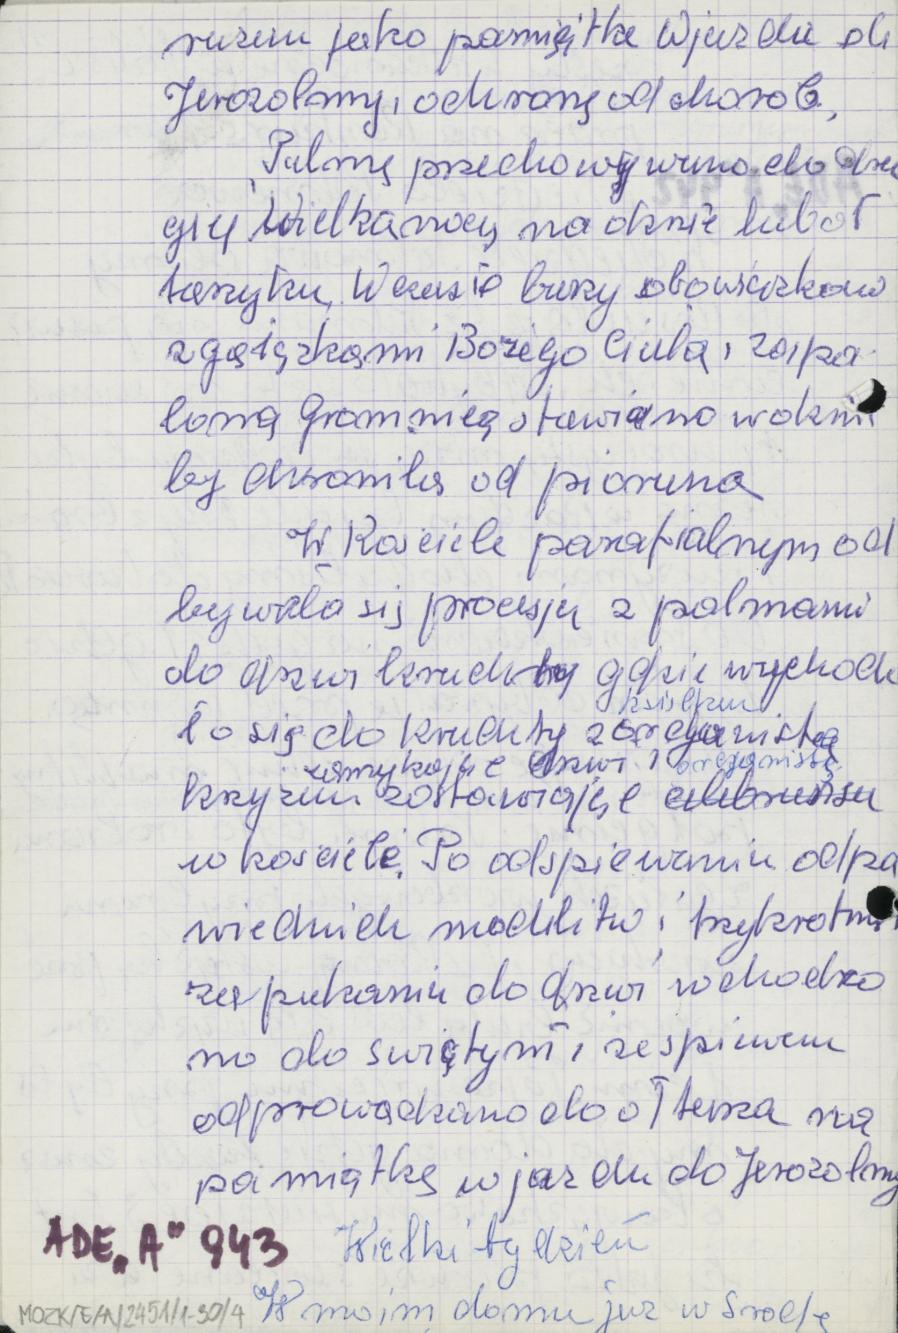 razem jako pamiątka wjazdu do
Jerozolimy, ochronę od chorob,
Palmę przechowywano do dru
giej Wielkanocy na oknie lub oł
tarzyku, W czasie burzy obowiązkowo
z gałązkami Bożego Ciała i zapa
loną Gromnicą stawiano w oknie
by chroniła od pioruna
W Kosciele parafialnym od
bywała się procesja z palmami
do drzwi kruchty gdzie wychodzi
ło się do kruchty z organistą
księdzem
krzyzem zostawiając celebransa
zamykając drzwi i organistę
w kosciele, Po odspiewaniu odpo
wiednich modlitw i trzykrotnym
zapukaniu do drzwi wchodzo
no do swiątyni i ze spiewem
odprowadzano do ołtarza na
pamiątkę wjazdu do Jerozolimy
ADE„A" 943
Wielki tydzień
MOZK/E/A/2451/1-30/4
W moim domu juz w Srodę